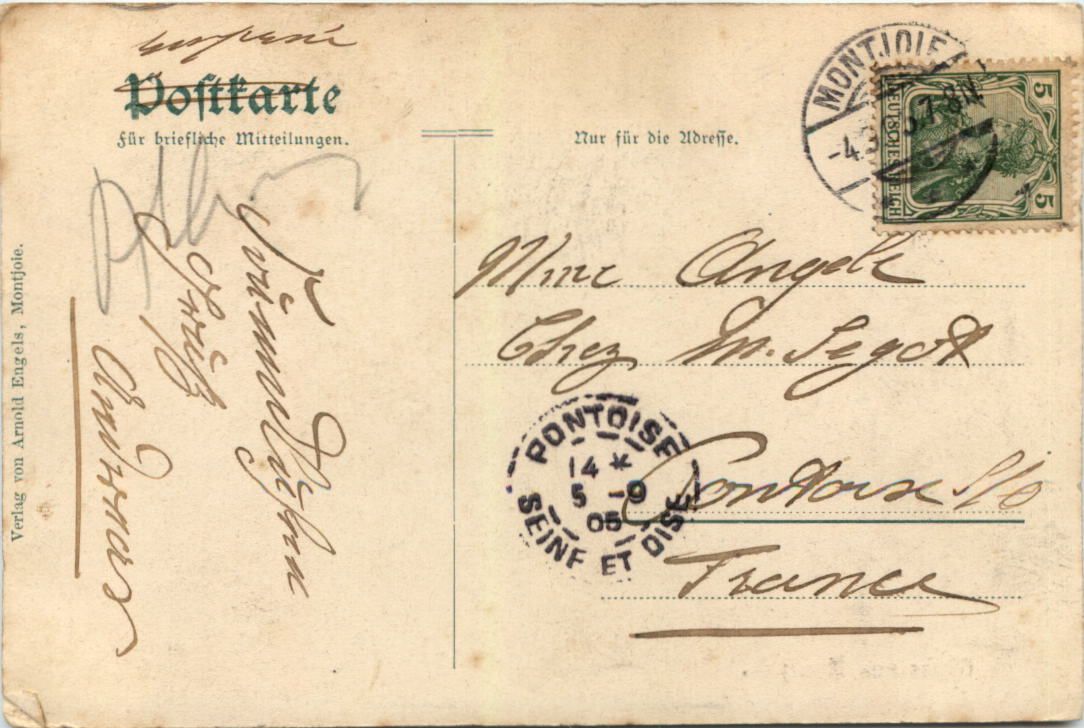 Postkarte
Für briefliche Mitteilungen.
Nur für die Adresse.
MONTJOIE
-4.9.05.7-8N
5
DEUTSCHES REICH
5
Mme Angele
Chez M. Segott
Pontoise S/O
France
PONTOISE
14 *
5 -9
05
SEINE ET OISE
Gruß
Andreas
Verlag von Arnold Engels, Montjoie.